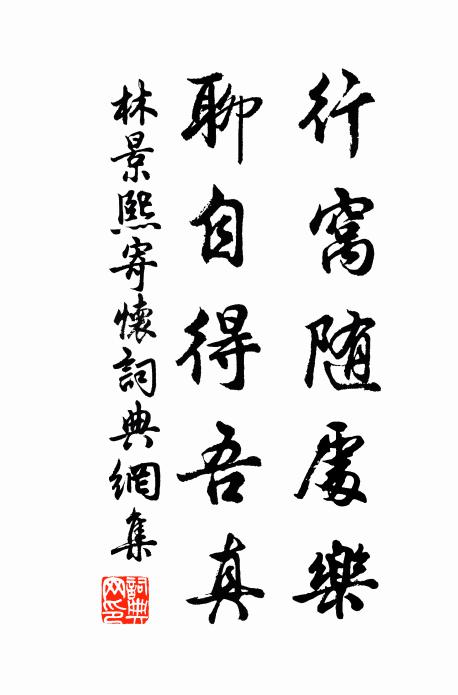 行窩随處樂
聊自得吾真
林景熙寄懷詞典網集
詞典网印